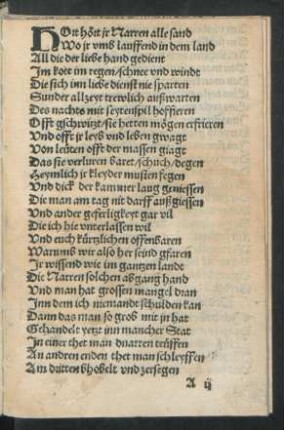 HOrt hört jr Narren alle sand
Wo jr vmb lauffend in dem land
All die der liebe hand gedient
Im kott im regen/schnee vnd windt
Die sich inn liebe dienst nie sparten
Sunder allzeyt trewlich außwarten
Des nachts mit seytenspil hoffieren
Offt gschwitzt/sie hetten mögen erfrieren
Vnd offt jr leyb vnd leben gwagt
Von leüten offt der massen giagt
Das sie verluren baret/schuch/degen
Heymlich jr kleyder musten fegen
Vnd dick der kammer laug geniessen
Die man am tag nit darff außgiessen
Vnd ander geferligkeyt gar vil
Die ich hie vnterlassen wil
Vnd euch kürtzlichen offenbaren
Warumb wir also her seind gfaren
Ir wissend wie im gantzen landt
Die Narren solchen abgang hand
Vnd man hat grossen mangel dran
Inn dem ich niemandt schulden kan
Dann das man so grob mit jn hat
Gehandelt yetz inn mancher Stat
In einer thet man dnarren trüffen
An andren enden thet man schleyffen
Am dritten bhobelt vnd zersegen
A ij